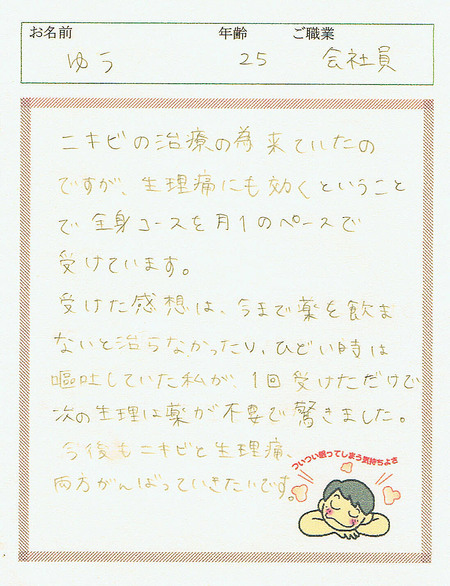 お名前 年齢 ご職業
ゆう 25 会社員
ニキビの治療の為来ていたの
ですが、生理痛にも効くということ
で全身コースを月1のペースで
受けています。
受けた感想は、今まで薬を飲ま
ないと治らなかったり、ひどい時は
嘔吐していた私が、1回受けただけで
次の生理は薬が不要で驚きました。
今後もニキビと生理痛、
両方がんばっていきたいです。
ついつい眠ってしまう気持ちよさ